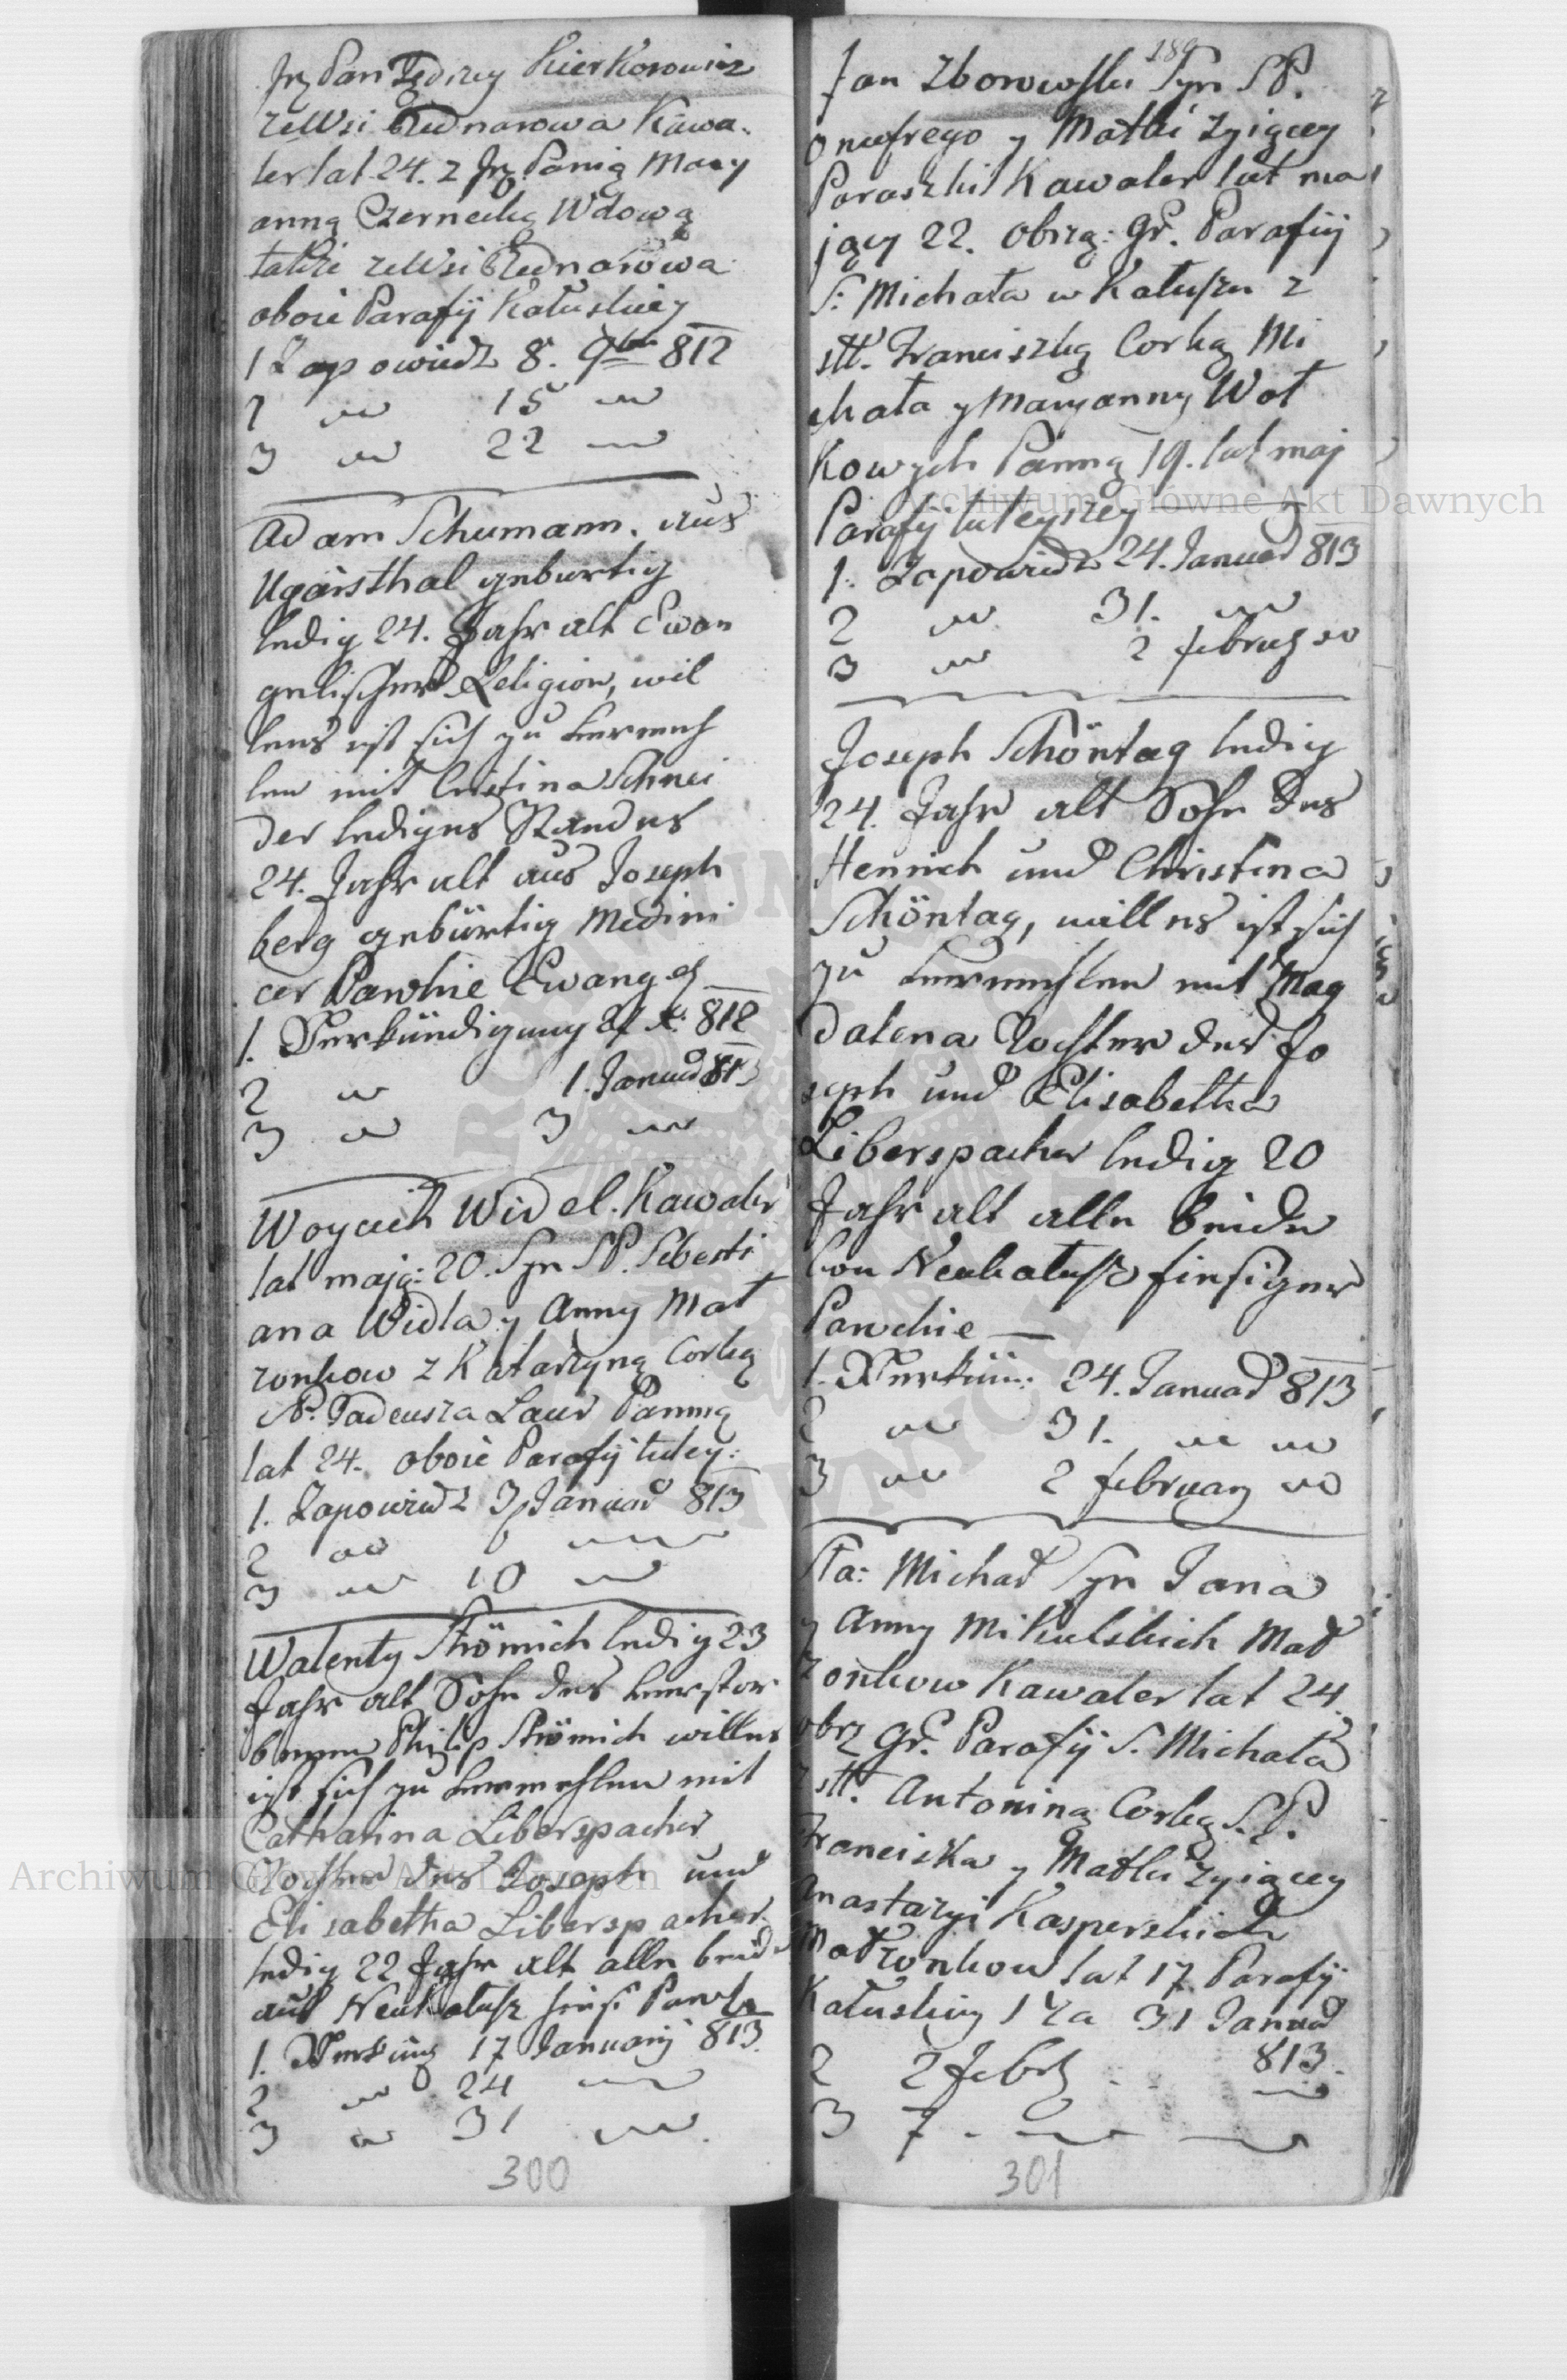 Jrz Pan Jędrzey Kierkorowicz
ze Wsi Bednarowa Kawa-
ler lat 24. z Jrz Panią Mary
anną Czernecką Wdową
także ze Wsi Bednarowa
oboie Parafij Kałuskiey
1 Zapowiedz 8. 9br 812
2 " 15 "
3 " 22 "
Adam Schumann. aus
Ugarsthal geburtig
ledig 24. Jahr alt Evan
gelischer Religion, wil
lens ist sich zu verereh
len mit Cristina Schnei
der lediges Standes
24. Jahr alt aus Joseph
berg gebürtig Medini
cer Pawhie Evang
1. Verkündigung 27 X. 812
2 " 1. Januar 813
3 " 3 "
Woyciech Widel. Kawaler
lat mają: 20. Syn SP. Sebesti
ana Widla y Anny Mał
zonkow z Katarzyną Corką
SP. Tadeusza Laur Panną
lat 24. oboie Parafij tutey:
1. Zapowiedz 3 Januar 813
2 " 6 "
3 " 10 "
Walenty Strömich ledig 23
Jahr alt Sohn des verstor
benen Philip Strömich willens
ist sich zu vermehlen mit
Catharina Liberspacher
Tochter des Joseph und
Elisabetha Liberspacher
ledig 22 Jahr alt alle beide
aus Neukałusz hiesi Pawh
1. Verkün 17 Januarij 813.
2 " 24 "
3 " 31 "
300
189
Jan Zborowski Syn SP.
Onufrego y Matki żyiącey
Paraszki Kawaler lat ma
jący 22. obrzą: Gr. Parafij
S: Michała w Kałuszu z
stt. Franciszką Corką Mi
chała y Maryanny Woł
kowych Panną 19. lat maj
Parafij tuteyszey
1. Zapowiedz 24. Januar 813
2 " 31. "
3 " 2 "
Joseph Schöntag ledig
24. Jahr alt Sohn des
Henrich und Christina
Schöntag, willens ist sich
zu vermehlen mit Mag
dalena Tochter des Jo
seph und Elisabetha
Liberspacher ledig 20
Jahr alt alle beide
von Neukałusz hiesiger
Pawchie
1. Verkün: 24. Januar 813
2 " 31. " "
3 " 2 februarij "
Sła: Michał Syn Jana
y Anny Mikulskich Mał
zonkow Kawaler lat 24.
obrz Gr. Parafij S. Michała
z stt. Antoniną Corką S.P.
Franciska y Matki żyiącey
Anastazyi Kasperskich
Małzonkow lat 17 Parafij
Kałuskiey 1 Za 31 Januar
2 2 Febr 813.
3 7 "
301
Archiwum Główne Akt Dawnych
Archiwum Główne Akt Dawnych